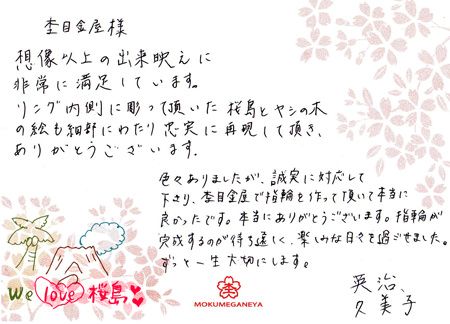 杢目金屋様
想像以上の出来映えに
非常に満足しています。
リング内側に彫って頂いた桜島とヤシの木
の絵も細部にわたり忠実に再現して頂き、
ありがとうございます。
色々ありましたが、誠実に対応して
下さり、杢目金屋で指輪を作って頂いて本当に
良かったです。本当にありがとうございます。指輪が
完成するのが待ち遠しく、楽しみな日々を過ごせました。
ずっと一生大切にします。
We love 桜島
MOKUMEGANEYA
英治、
久美子